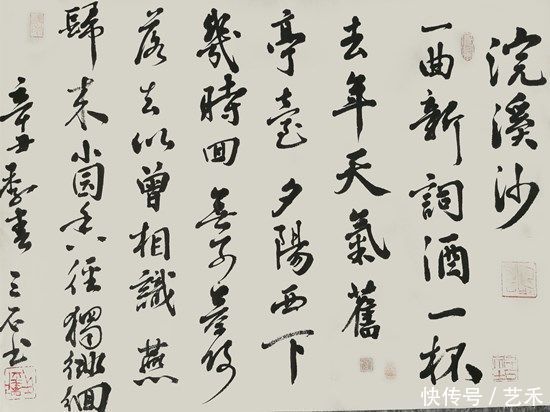 浣溪沙
一曲新詞酒一杯
去年天氣舊
亭臺夕陽西下
幾時回無可奈何
落去似曾相識燕
歸来小园香徑獨徘徊
辛丑季春 三石书
快传号/艺禾